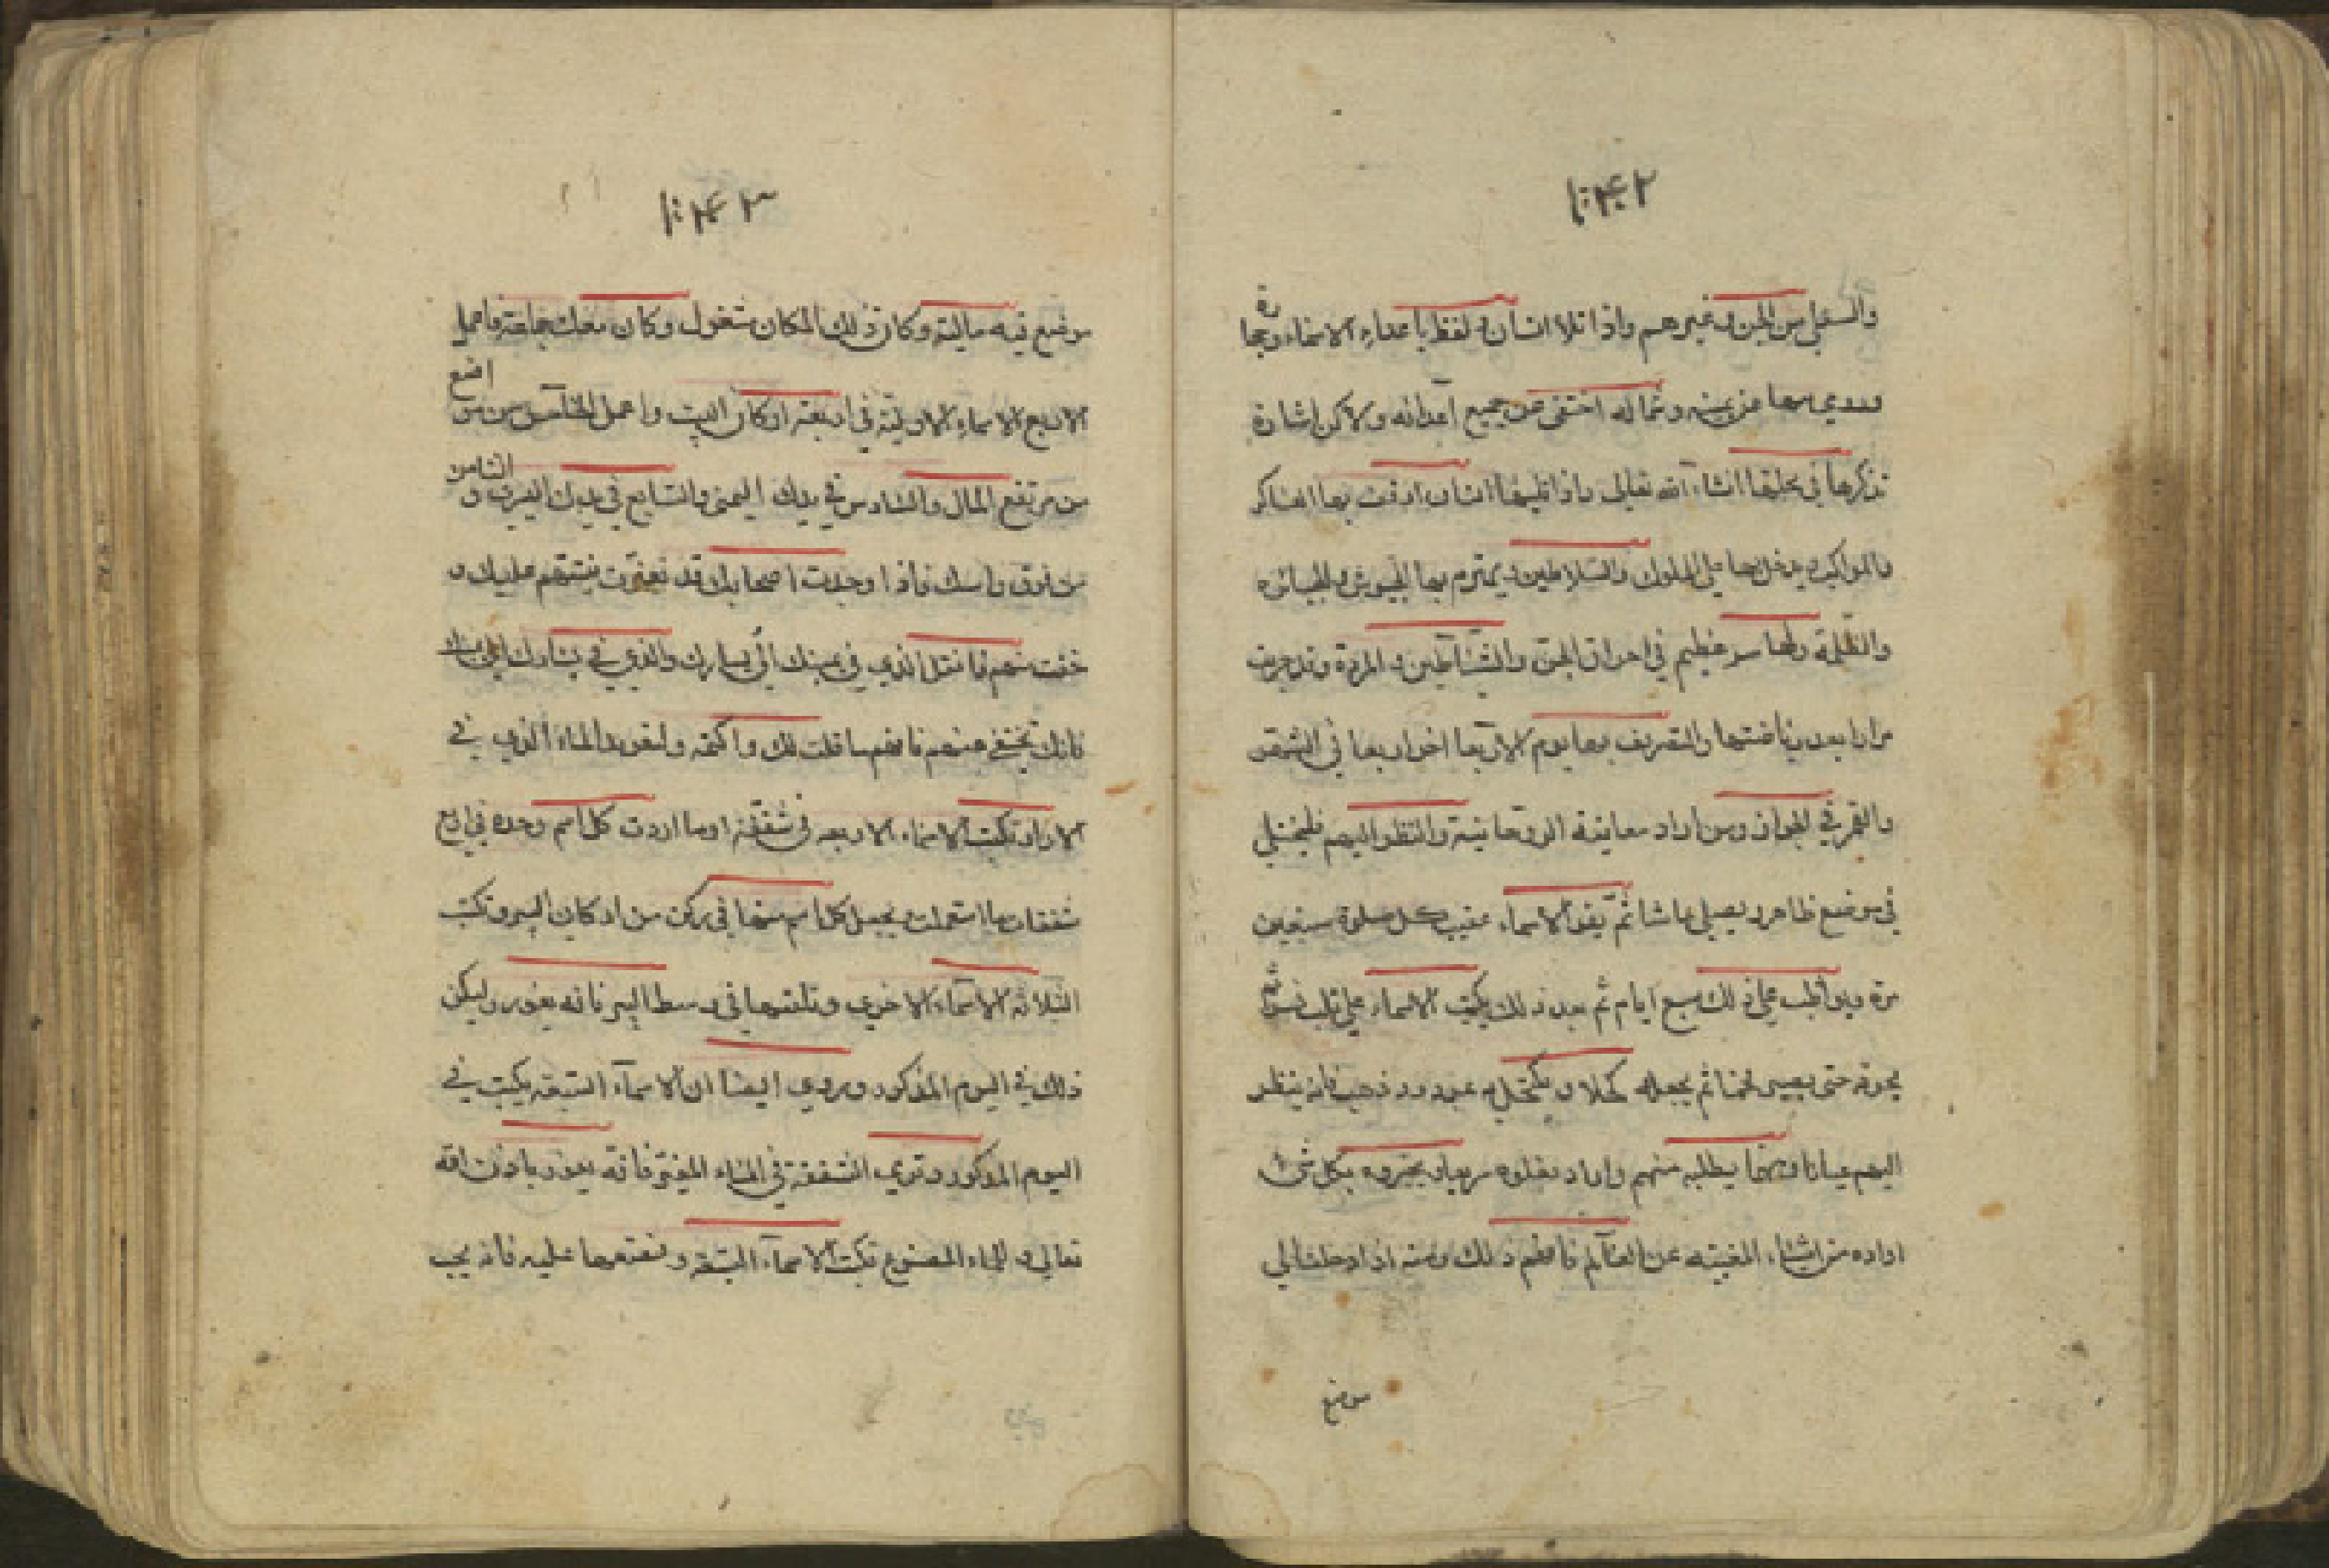 ١٠٤٢
والسفلي من الجن وغيرهم واذا تلا انسان ولفظ باعداء الاسماء
عن يمينه وشماله اختفى عن جميع اعدائه ولاكن اشارة
نذكرها في محلها انشاء الله تعالى واذا انسان ارفت بها العساكر
والمواكب ويدخل بها على الملوك والسلاطين ويهزم بها الجيوش والجبابره
والظلمة ولها سر عظيم في احراق الجن والشياطين والمردة وقد جربت
مرارا بعد رياضتها والتصريف بها يوم الاربعا اخر اربعا في الشهر
والقمر في ومن اراد معاينة الروحانية والنظر اليهم فليختلي
في موضع طاهر ويصلي ماشا ثم يقرا الاسماء عقيب كل صلوة سبعين
مرة ويواظب على ذلك سبع ايام ثم بعد ذلك يكتب الاسماء على قلب
يحرقه حتى يصير فحما ثم يجعله كحلا ويكتحل به بمرود ذهب فانه ينظر
اليهم عيانا ومهما يطلبه منهم واراد يفعلوه سريعا ويخبروه بكل شئ
اراده من اشياء المغيبه عن العالم فافهم ذلك ومنه اذا دخلت الي
موضع
١٠٤٣
موضع فيه مالية وكان ذلك المكان مشغول وكان معك جماعة فاعمل
الاربع الاسماء الاولية في اربعة اركان البيت واعمل الخامس من
اضع
من مرتفع المال والسادس في يدك اليمنى والسابع في يدك اليسرى و
الثامن
من فوق راسك فاذا وجدت اصحابك قد تغيرت نيتهم عليك و
خفت منهم فانقل الذي في يمينك الى يسارك والذي في يسارك الى يمينك
فانك تختفي عنهم فافهم ما قلت لك واكتمه ولتغوير الماء الذي في
الابار تكتب الاسماء الاربعه في شقفة او ما اردت كل اسم وحده في اربع
شقفات ما استعملت ويجعل كل اسم منها في ركن من اركان البير وتكتب
الثلاثة الاسماء الاخرى وتلقيها في وسط البير فانه يغور وليكن
ذلك في اليوم المذكور ويروي ايضا ان الاسماء السبعه يكتب في
اليوم المذكور وترمي الشقفة في الماء فانه يغور باذن الله
تعالى والماء المصنوع تكتب الاسماء السبعة وتضعها عليه فانه